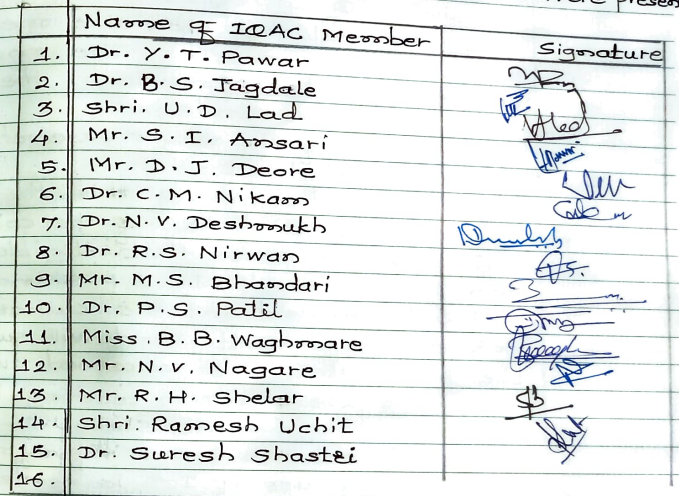 were presen
Name of IQAC Member Signature
1. Dr. Y. T. Pawar
2. Dr. B. S. Jagdale
3. Shri. U. D. Lad
4. Mr. S. I. Ansari
5. Mr. D. J. Deore
6. Dr. C. M. Nikam
7. Dr. N. V. Deshmukh
8. Dr. R. S. Nirwan
9. Mr. M. S. Bhandari
10. Dr. P. S. Patil
11. Miss. B. B. Waghmare
12. Mr. N. V. Nagare
13. Mr. R. H. Shelar
14. Shri. Ramesh Uchit
15. Dr. Suresh Shastri
16.